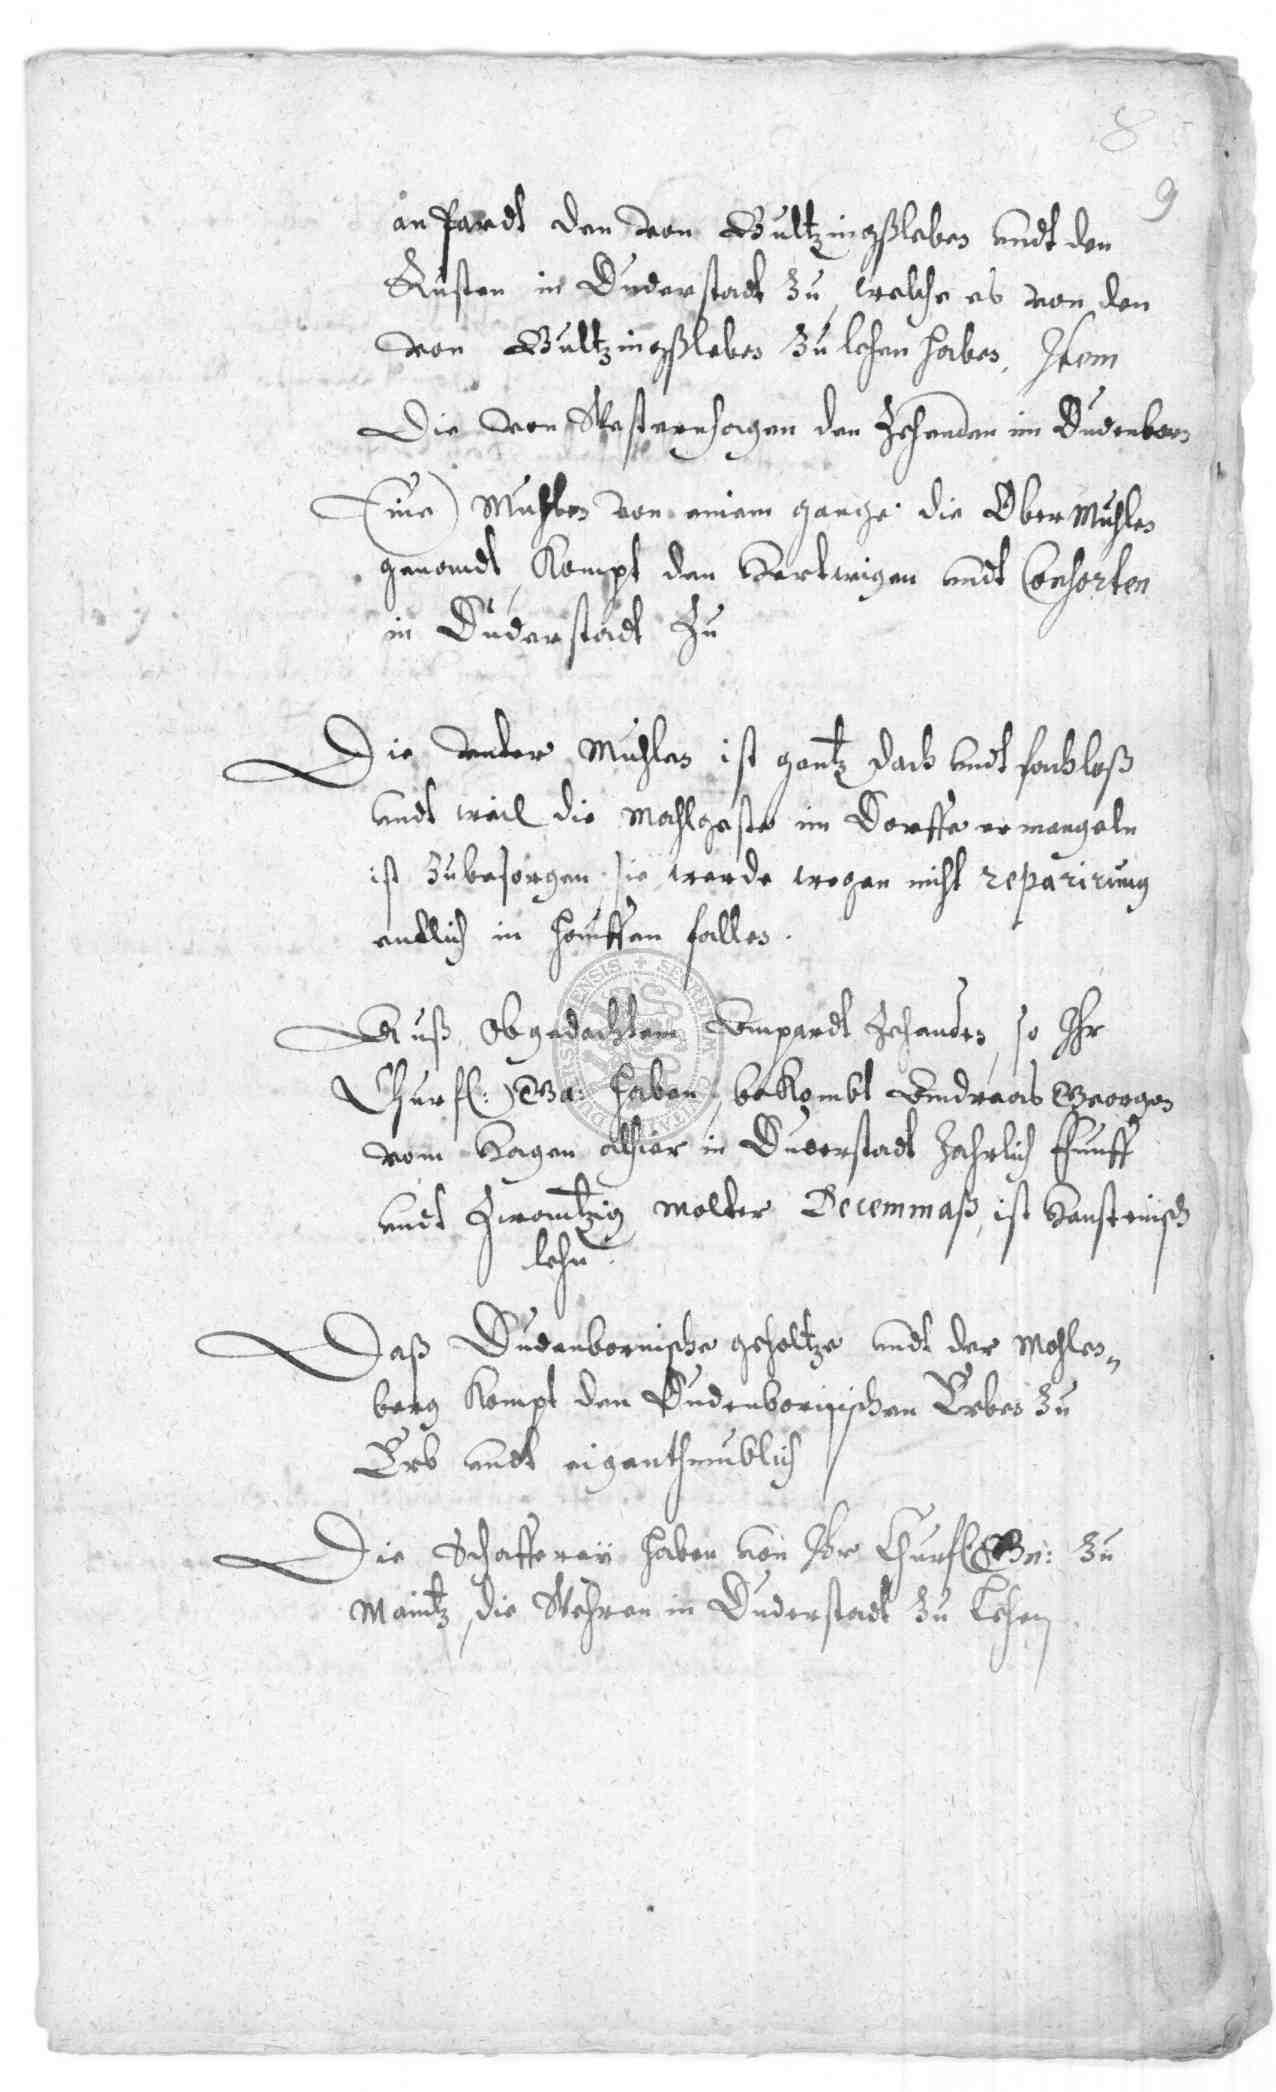 8
9
an pardt den von Wultzingßleben undt den
Kusten in Duderstadt zu, welche es von den
von Wultzingßleben zu lehen haben, Item
Die von Westernhagen den Zehenden im Dudenborn
Eine Muhlen von einem gange die Ober Muhlen
genandt, Kompt den Hertwigen undt Consorten
in Duderstadt zu
Die under Muhlen ist gantz dach undt fachloß
undt weil die Mahlgeste im Dorffe ermangeln
ist zubesorgen sie werde wegen nicht reparirung
entlich in hauffen fallen.
Auß obgedachtem Zehenden, so Ihr
Churfl: Gn: haben, bekombt Andreas Georgen
vom Hagen alhier in Duderstadt Jahrlich Funff
undt Zwantzig Molter Decemmaß, ist Hansteinisch
lehn.
Daß Dudenbornische geholtze undt der Mohlen-
berg Kompt den Dudenbornischen Erben zu
Erb undt eigenthumblich
Die Schafferey haben von Ihr Churfl Gn: zu
Maintz, die Wehren in Duderstadt zu Lehen